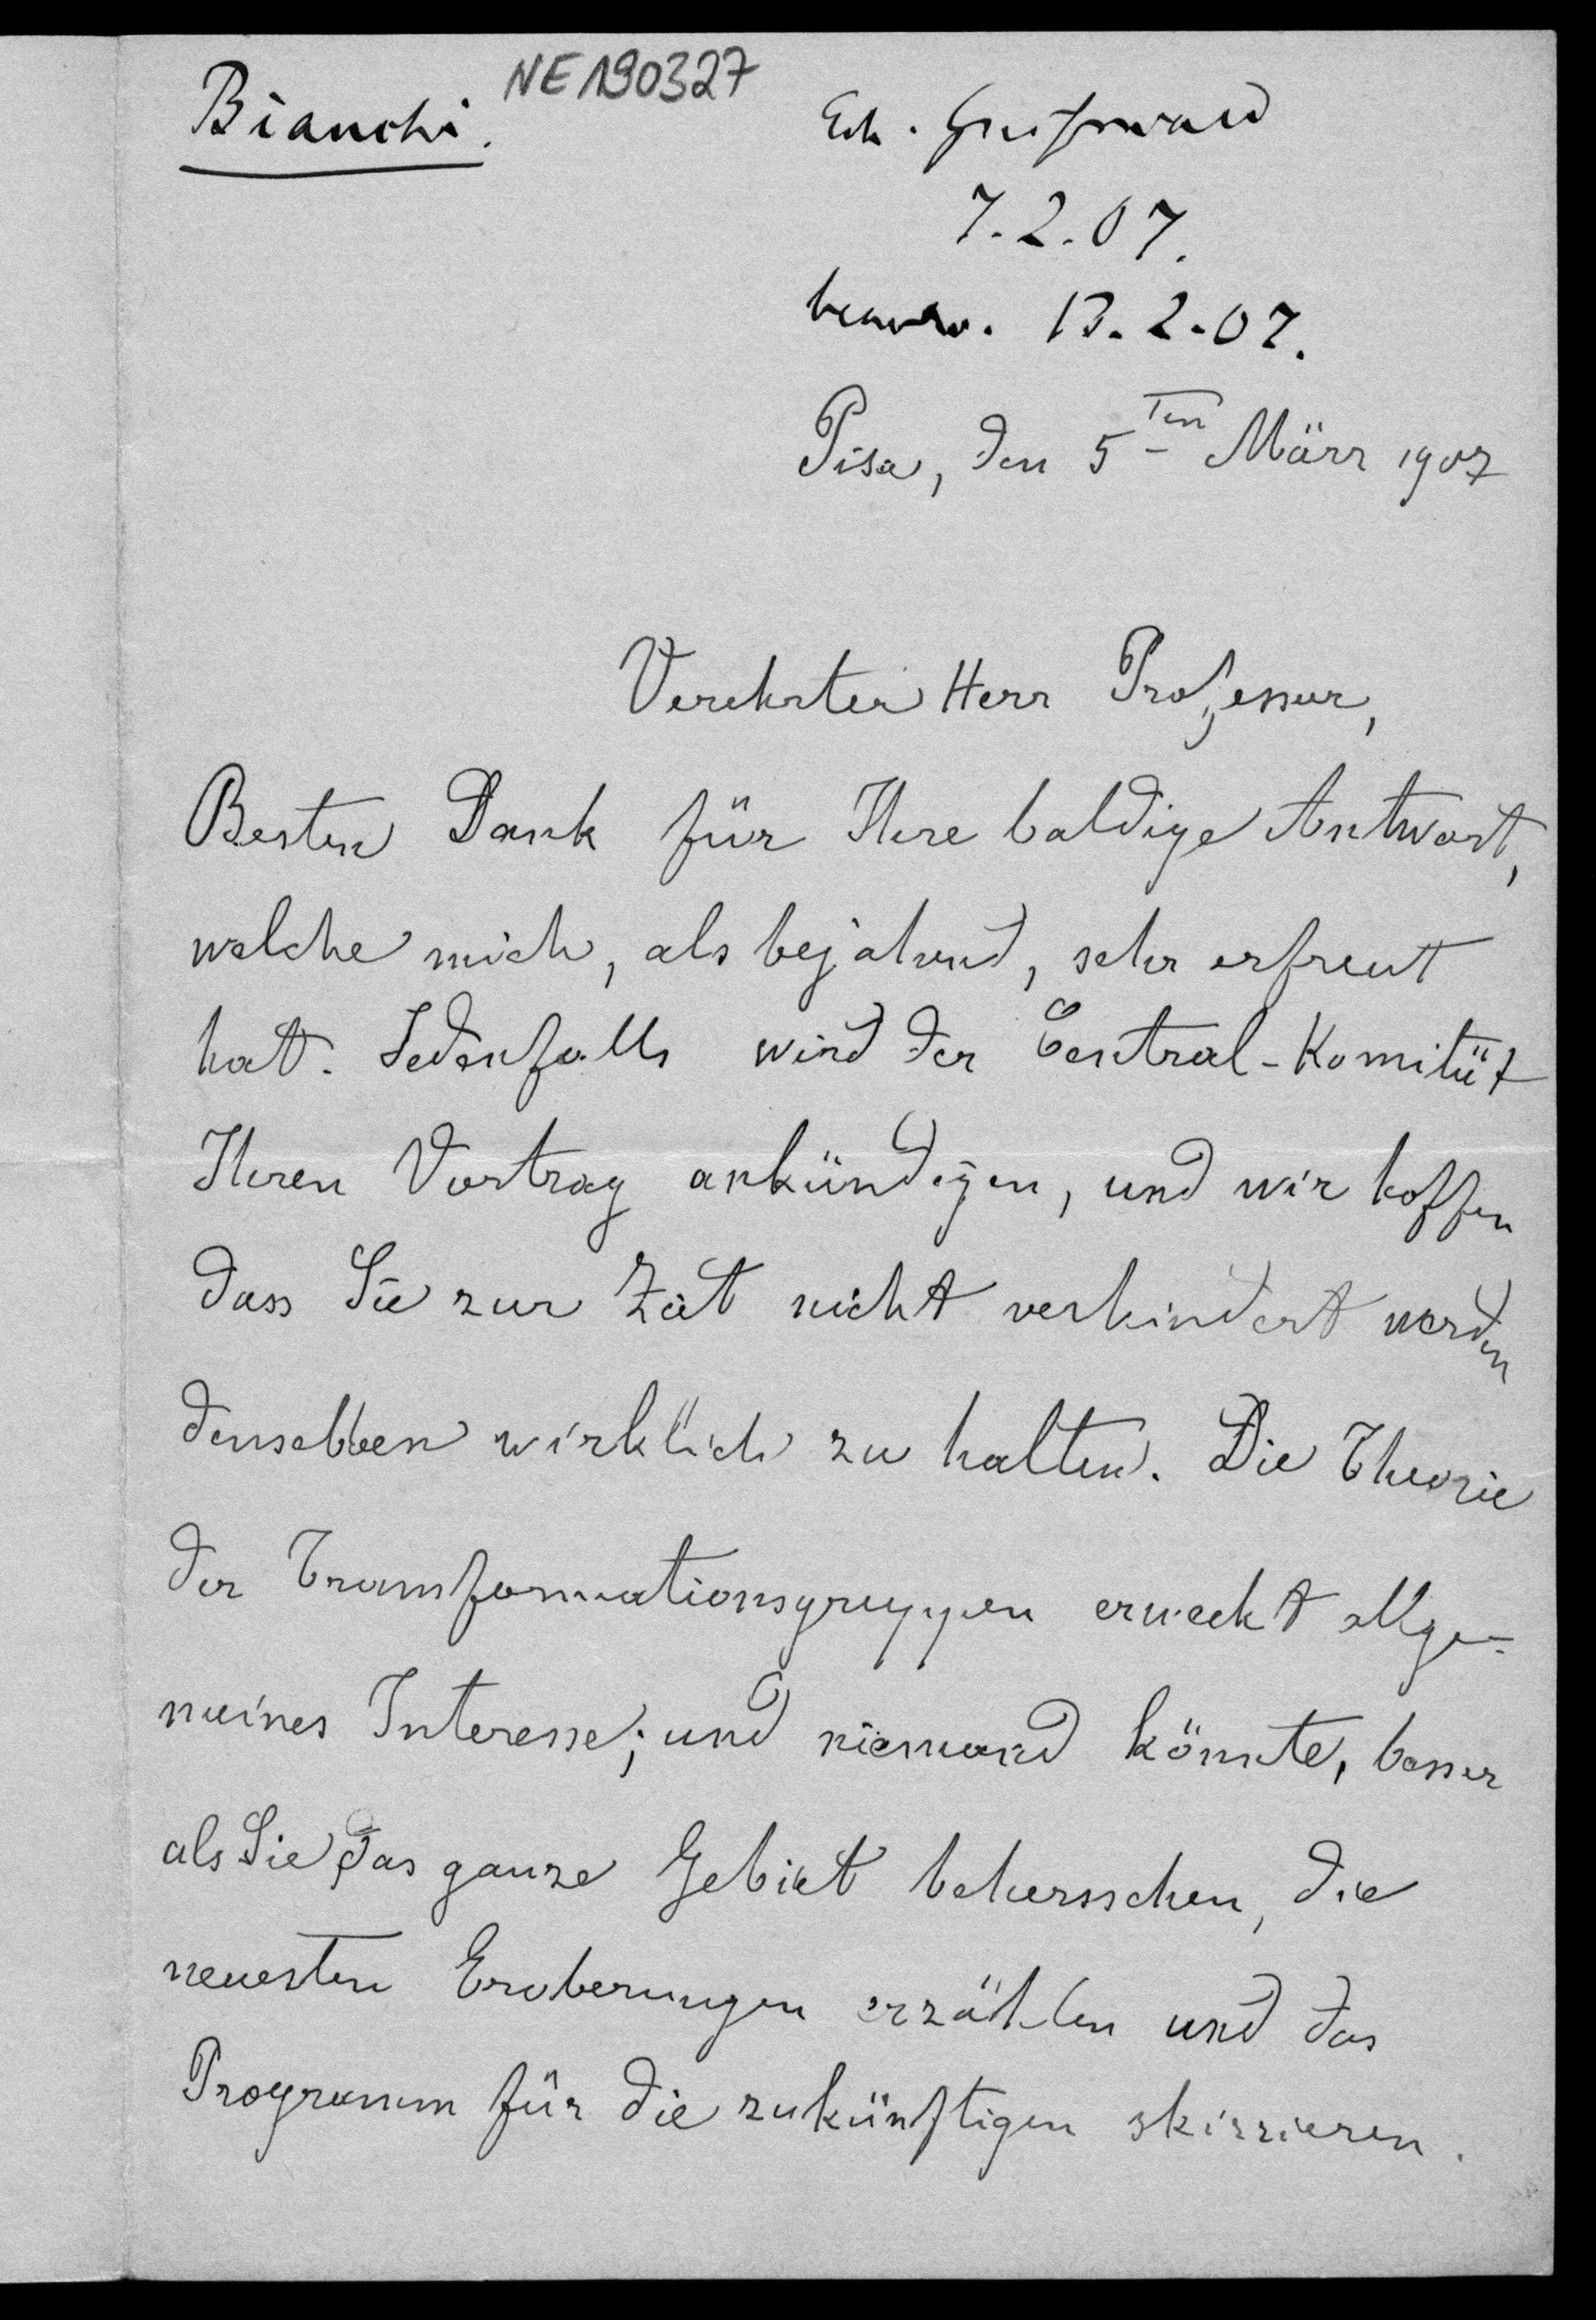 Bianchi.
NE190327
Erh. Greifswald
7.2.07.
beantw. 13.2.07.
Pisa, den 5ten März 1907
Verehrter Herr Professor,
Besten Dank für Ihre baldige Antwort,
welche mich, als bejahend, sehr erfreut
hat. Jedenfalls wird der Central-Komität
Ihren Vortrag ankündigen, und wir hoffen
dass Sie zur Zeit nicht verhindert werden
denselben wirklich zu halten. Die Theorie
der Transformationsgruppen erweckt allge-
meines Interesse; und niemand könnte, besser
als Sie das ganze Gebiet beherschen, die
neuesten Eroberungen erzählen und das
Programm für die zukünftigen skizzieren.